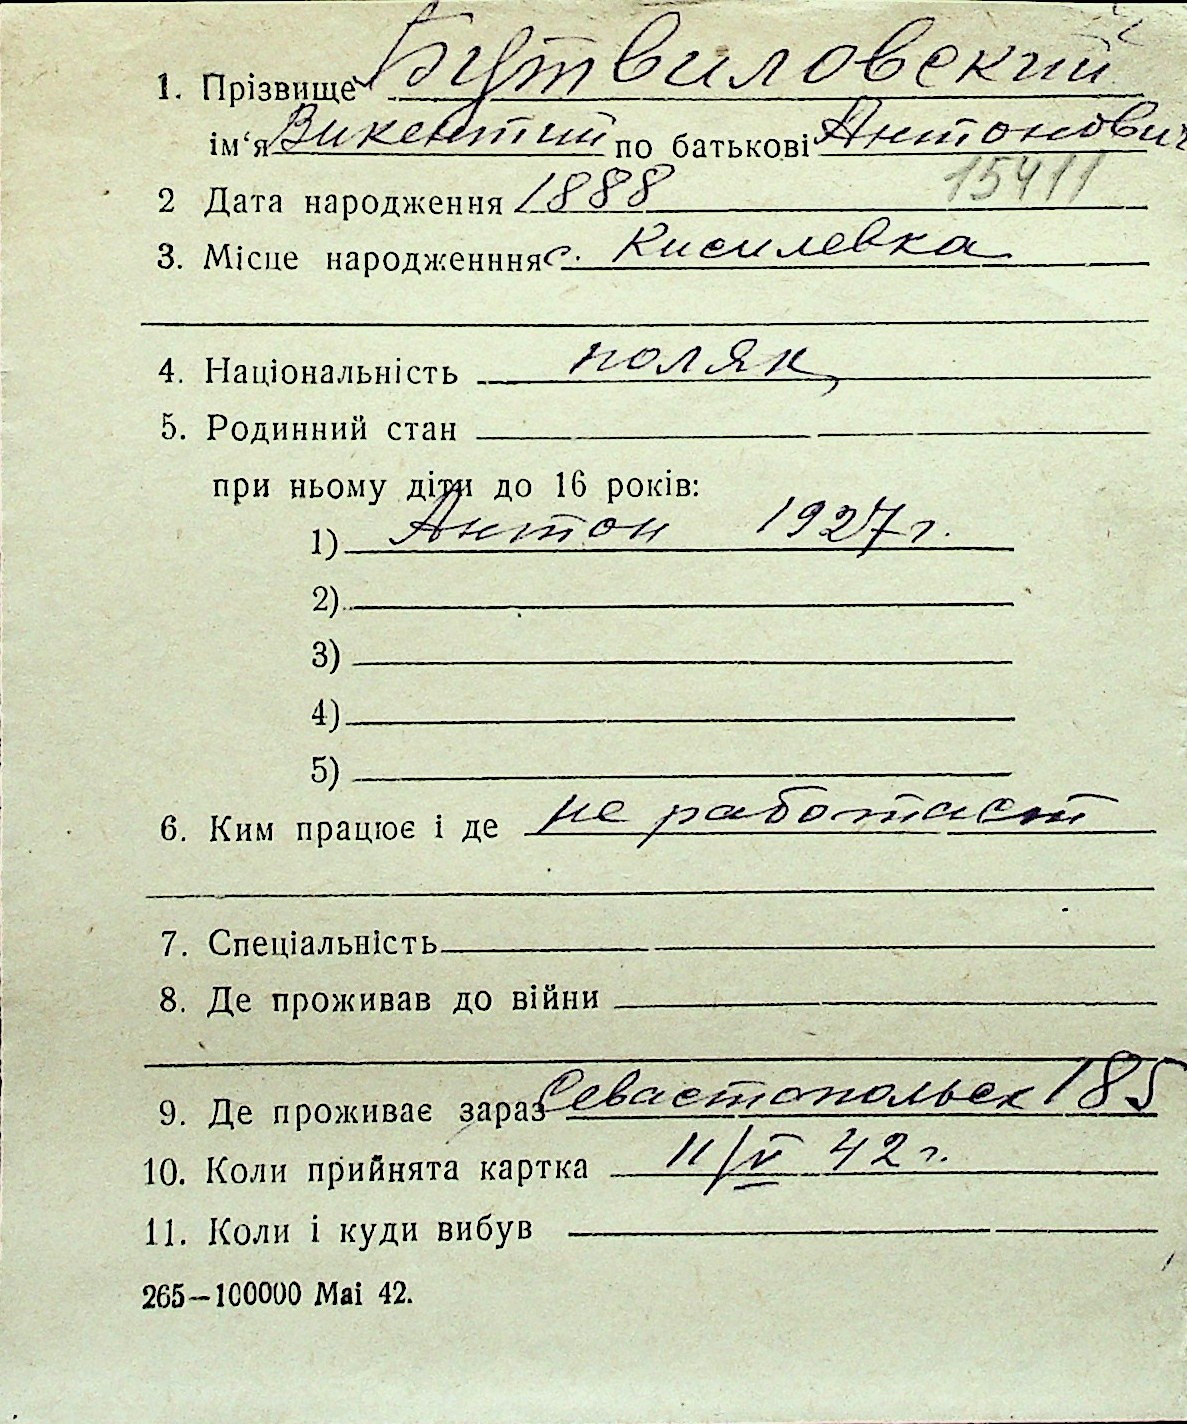 1. Прізвище Бутвиловский
ім‘я Викентий по батькові Антонович
15411
2 Дата народження 1888
3. Місце народженння с. Кисилевка
4. Національність поляк
5. Родинний стан
при ньому діти до 16 років:
1) Антон 1927 г.
2)
3)
4)
5)
6. Ким працює і де не работает
7. Спеціальність
8. Де проживав до війни
9. Де проживає зараз Севастопольск 185
10. Коли прийнята картка 11/V 42 г.
11. Коли і куди вибув
265—100000 Маі 42.